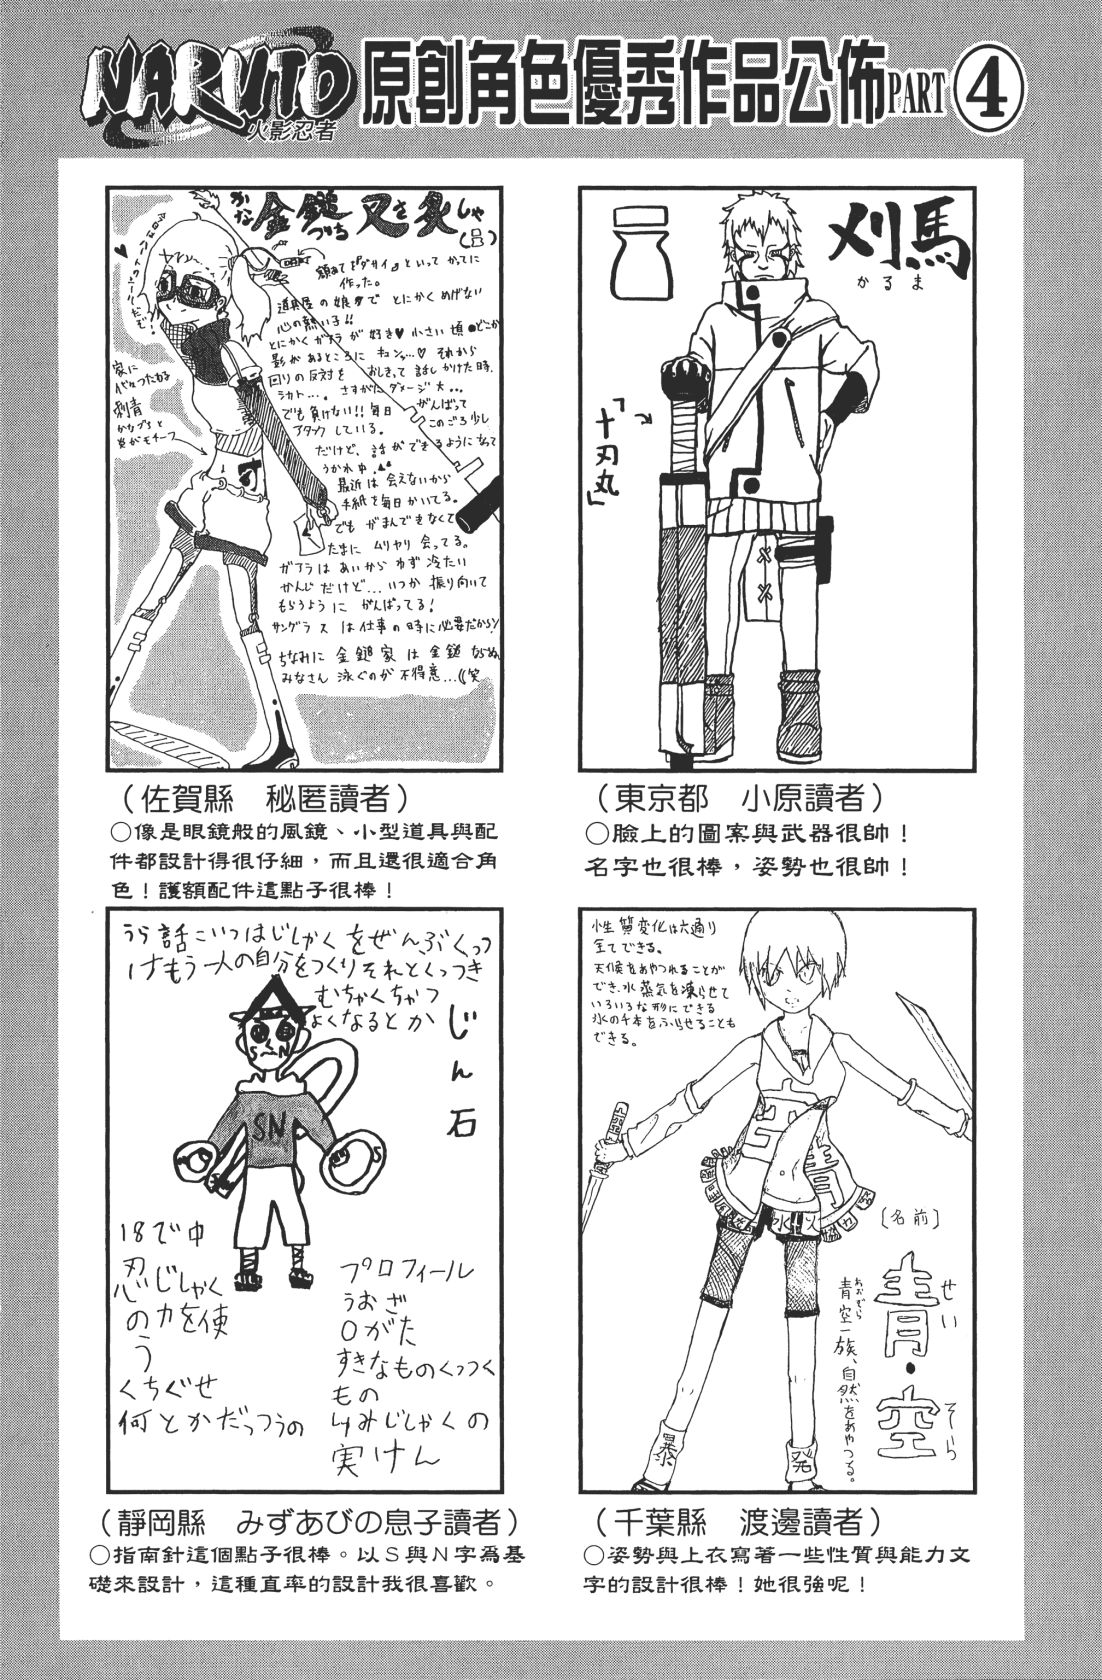 NARUTO
火影忍者
原創角色優秀作品公佈PART④
金鎚 又炙
かな
つち
しゃ
額あてを『ダサイ』といって かってに
作った。
道具屋の娘で とにかく めげない
心の熱い子!!
とにかくガアラが好き♥ 小さい頃 どこか
影があるところに キュン…♡ それから
回りの反対を おしきって 話しかけた時、
シカト…。さすがにダメージ大…。
でも負けない!!毎日 がんばって
アタックしている。 このごろ少し
だけど、話ができるようになって
うかれ中。
最近は会えないから
手紙を毎日かいてる。
でも がまんできなくて
たまに ムリヤリ 会ってる。
ガアラは あいからわず 冷たい
かんじだけど…いつか 振り向いて
もらうように がんばってる!
サングラスは仕事の時に必要だから!
ちなみに 金鎚家は 金鎚 ならぬ
みなさん 泳ぐのが 不得意…(笑
家に
代々つたわる
刺青
かなづちと
炎がモチーフ
(佐賀縣　秘匿讀者)
○像是眼鏡般的風鏡、小型道具與配
件都設計得很仔細，而且還很適合角
色！護額配件這點子很棒！
刈馬
かるま
「十刃丸」
(東京都　小原讀者)
○臉上的圖案與武器很帥！
名字也很棒，姿勢也很帥！
うら話こいつはじしゃくをぜんぶくっつ
けもう一人の自分をつくりそれとくっつき
むちゃくちゃつ
よくなるとか
じん石
SN
S N
18で中
忍じしゃく
の力を使
う
くちぐせ
何とかだっつうの
プロフィール
うおざ
O がた
すきなものくっつく
もの
しゅみじしゃくの
実けん
(靜岡縣　みずあびの息子讀者)
○指南針這個點子很棒。以S與N字為基
礎來設計，這種直率的設計我很喜歡。
性質変化は六通り
全てできる。
天候をあやつれることが
でき、水蒸気を凍らせて
いろいろな形にできる
氷の千本をふらせることも
できる。
空
青
水 火
暴
発
[名前]
青・空
せい
そら
青空一族、自然をあやつる。
あおぞら
(千葉縣　渡邊讀者)
○姿勢與上衣寫著一些性質與能力文
字的設計很棒！她很強呢！